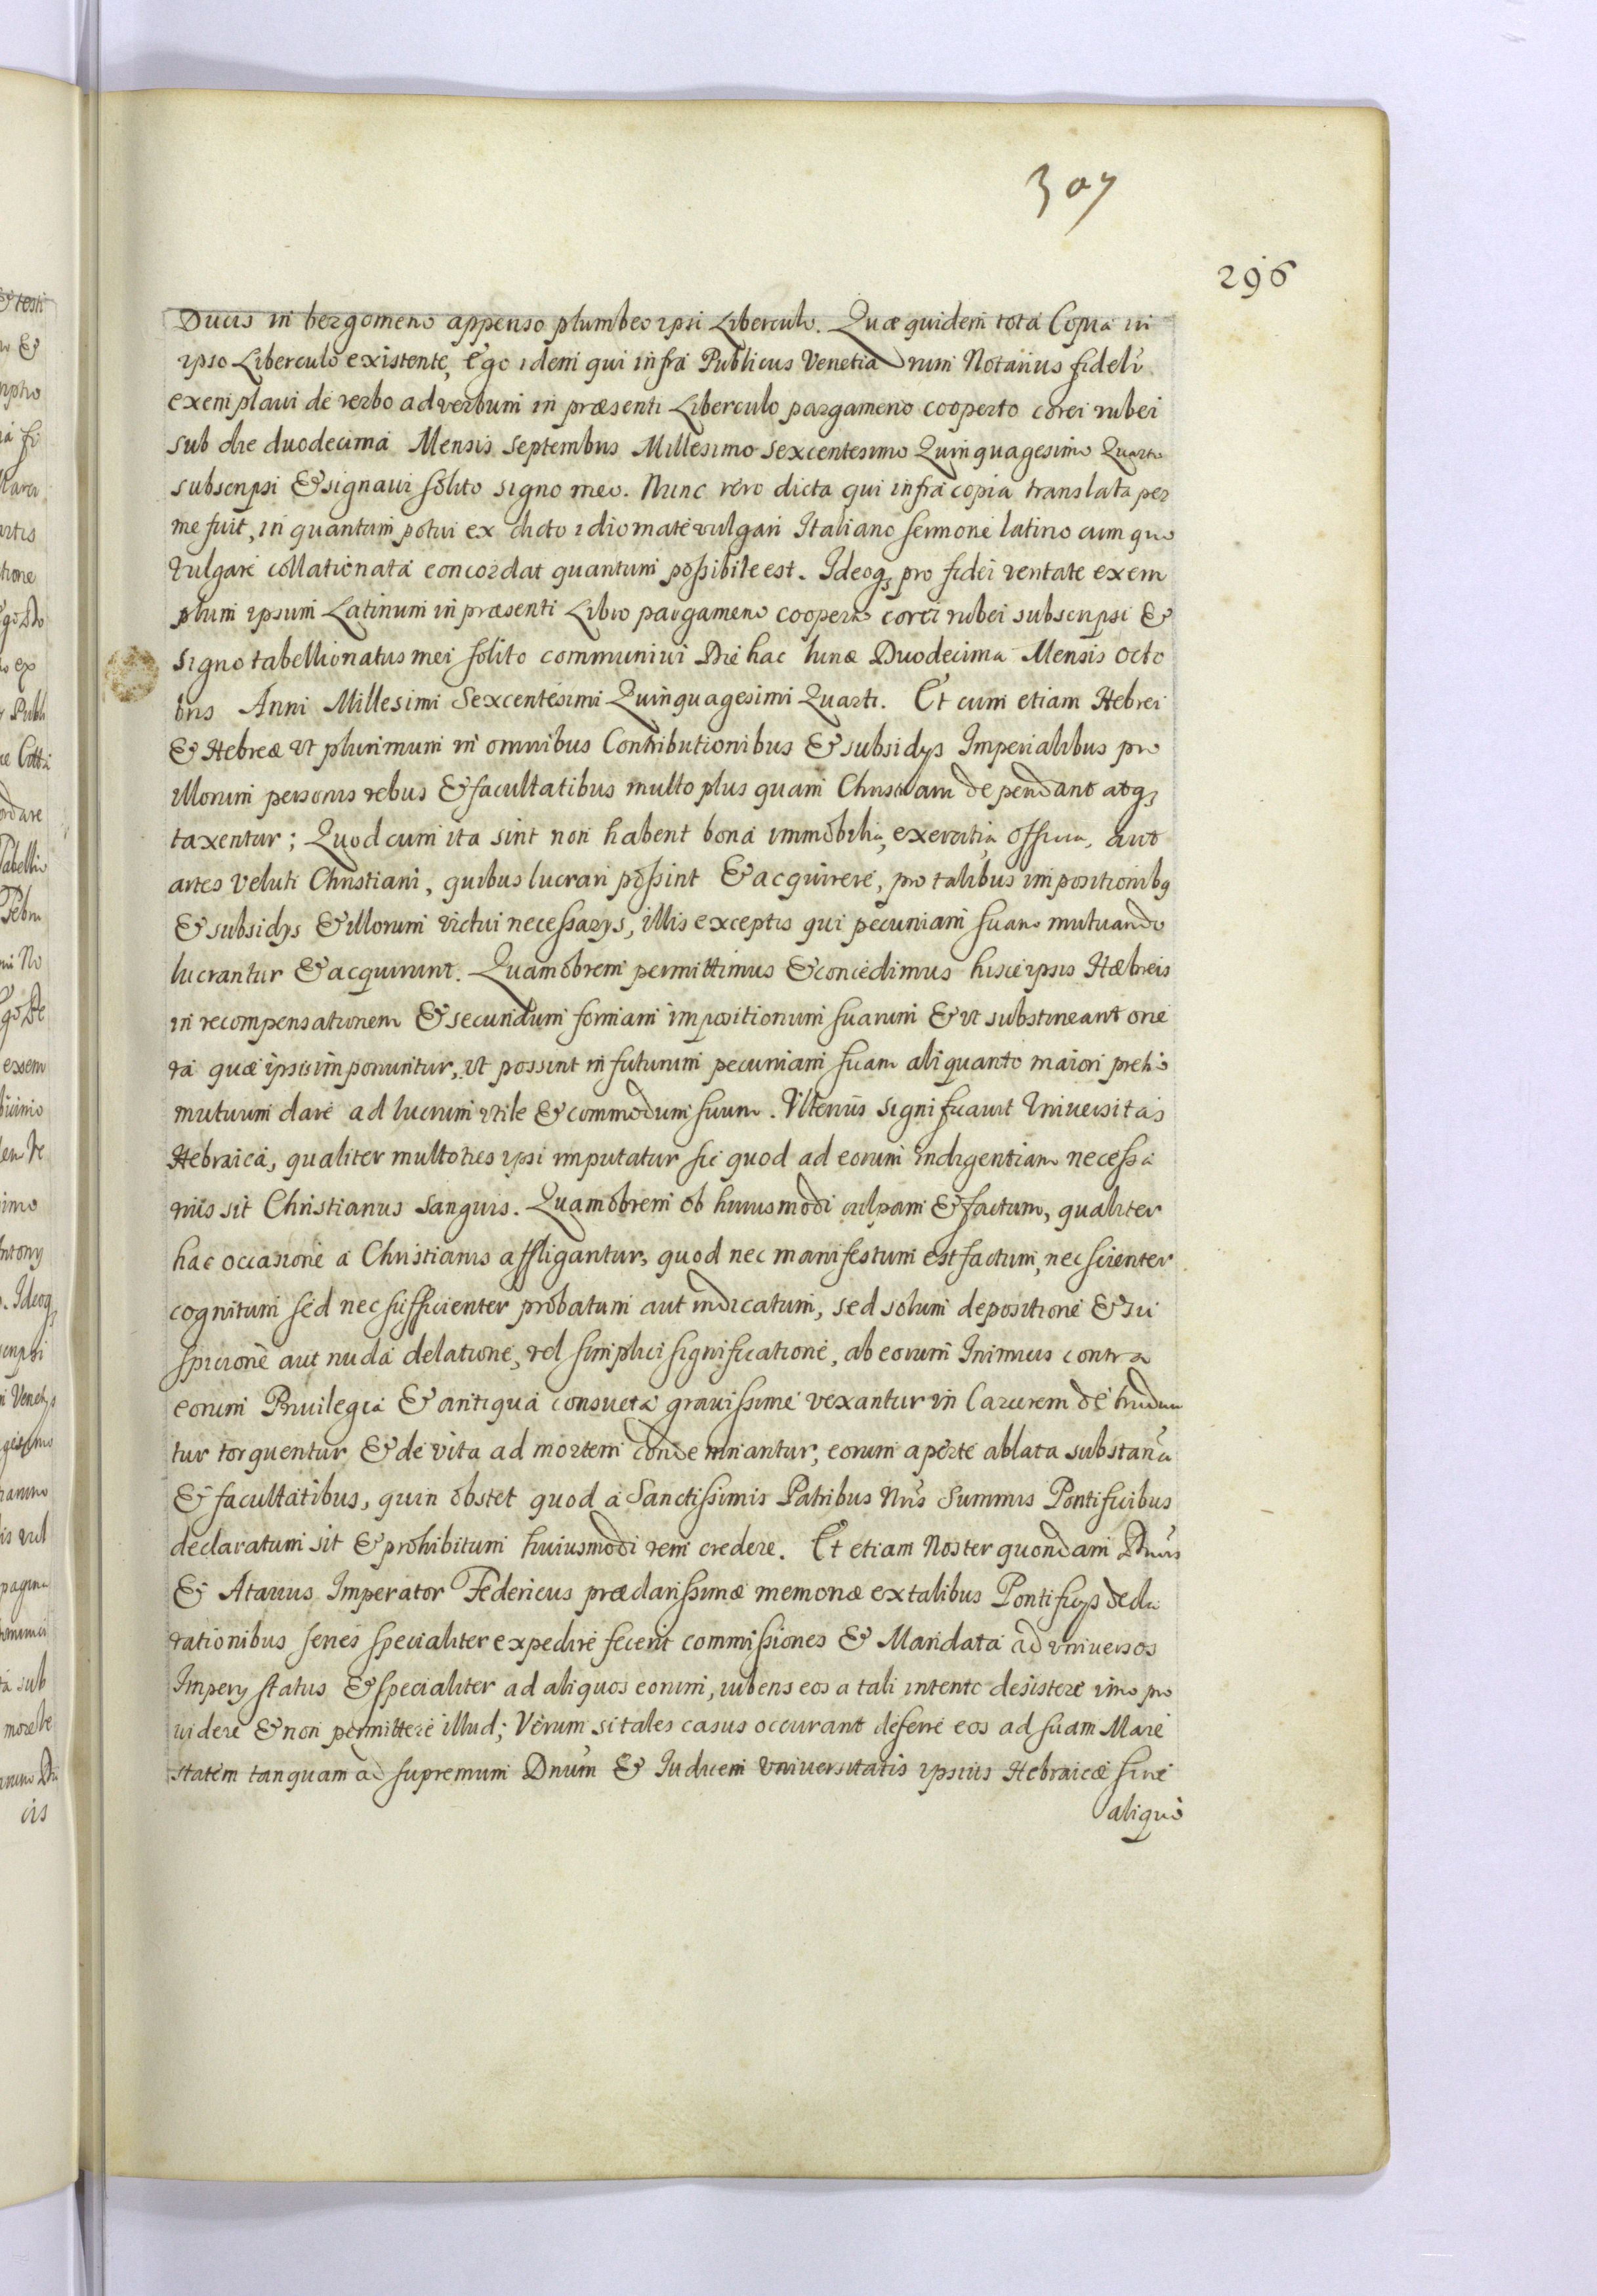 307
296
Ducis in bergomeno appenso plumbeo ipsi Liberculo. Quæ quidem tota Copia in
ipso Liberculo existente, Ego idem qui infrà Publicus Venetiarum Notarius fideli
exemplaui de verbo ad verbum in præsenti Liberculo pargameno cooperto corei rubei
sub die duodecima Mensis Septembris Millesimo sexcentesimo Quinquagesimo Quarto
subscripsi & signaui solito signo meo. Nunc vero dicta qui infra copia translata per
me fuit, in quantum potui ex dicto idiomate vulgari Italiano sermone latino cum quo
vulgare collationata concordat quantum possibile est. Ideoq, pro fidei veritate exem
plum ipsum Latinum in præsenti Libro pargameno cooperto corei rubei subscripsi &
signo tabellionatus mei solito communiui Die hac lunæ Duodecima Mensis Octo
bris Anni Millesimi Sexcentesimi Quinquagesimi Quarti. Et cum etiam Hebrei
& Hebreæ vt plurimum in omnibus Contributionibus & subsidijs Imperialibus pro
illorum personis rebus & facultatibus multo plus quam Christiani dependant atq,
taxentur; Quod cum ita sint non habent bona immobilia, exercitia, officia, aut
artes veluti Christiani, quibus lucrari possint & acquirere, pro talibus impositionibq
& subsidijs & illorum victui necessarijs, illis exceptis qui pecuniam suam mutuando
lucrantur & acquirunt. Quamobrem permittimus & concedimus hisce ipsis Hæbreis
in recompensationem & secundum formam impositionum suarum & vt substineant one
ra quæ ipsis imponuntur, vt possint in futurum pecuniam suam aliquanto maiori pretio
mutuum dare ad lucrum vtile & commodum suum. Vlterius significauit Vniuersitas
Hebraica, qualiter multoties ipsi imputatur sic quod ad eorum indigentiam necessa
rius sit Christianus sanguis. Quamobrem ob huiusmodi culpam & factum, qualiter
hac occasione a Christianis affligantur, quod nec manifestum est factum, nec scienter
cognitum sed nec sufficienter probatum aut indicatum, sed solum depositione & su
spicione aut nuda delatione, vel simplici significatione, ab eorum Inimicis contra
eorum Priuilegia & antiqua consueta grauissime vexantur in Carcerem detrudun
tur torquentur & de vita ad mortem condemnantur, eorum aperte ablata substantia
& facultatibus, quin obstet quod a Sanctissimis Patribus Nris Summis Pontificibus
declaratum sit & prohibitum huiusmodi rem credere. Et etiam Noster quondam Dnus
& Atauus Imperator Federicus præclarissimæ memoriæ ex talibus Pontificijs decla
rationibus series specialiter expedire fecerit commissiones & Mandata ad vniuersos
Imperij status & specialiter ad aliquos eorum, iubens eos a tali intento desistere imo pro
uidere & non permittere illud; Verum si tales casus occurant deferre eos ad suam Maie
statem tanquam ad supremum Dnum & Iudicem Vniuersitatis ipsius Hebraicæ sine
aliquo